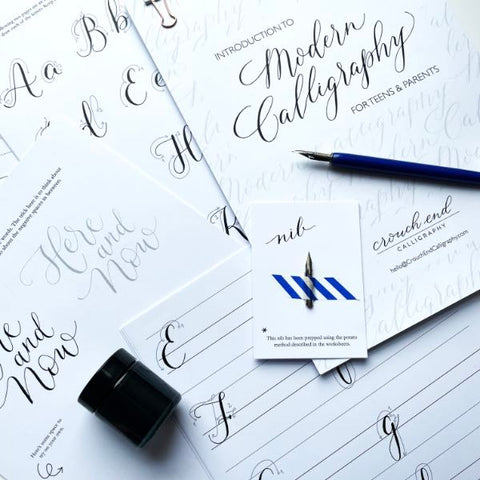 INTRODUCTION TO
Modern
Calligraphy
FOR TEENS & PARENTS
crouch end
CALLIGRAPHY
hello@CrouchEndCalligraphy.com
nib
* This nib has been prepped using the potato
method described in the worksheets.
A a
B b
E e
H
K
Here
and
Now
and
Now
Here's some space to
try on your own.
E
F
g